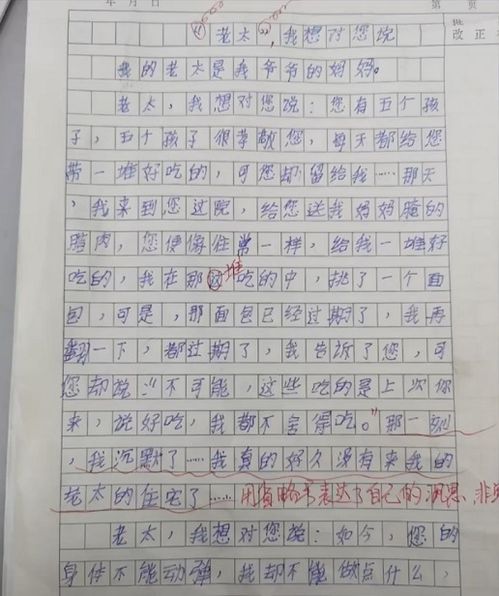 年 月 日 第 页
批
改 正
“老太”,我想对您说
我的老太是我爷爷的妈妈。
老太,我想对您说:您有五个孩
子,五个孩子很孝敬您,每天都给您
带一堆好吃的,可您却留给我……那天
,我来到您过院,给您送我妈妈腌的
腊肉,您便像往常一样,给我一堆好
吃的,我在那 堆吃的中,挑了一个面
包,可是,那面包已经过期了,我再
翻一下,都过期了,我告诉了您,可
您却说:“不可能,这些吃的是上次你
来,说好吃,我都不舍得吃。”那一刻
,我沉默了……我真的好久没有来我的
老太的住宅了…… 用省略号表达了自己的沉思,非
老太,我想对您说:如今,您的
身体不能动弹,我却不能做点什么,